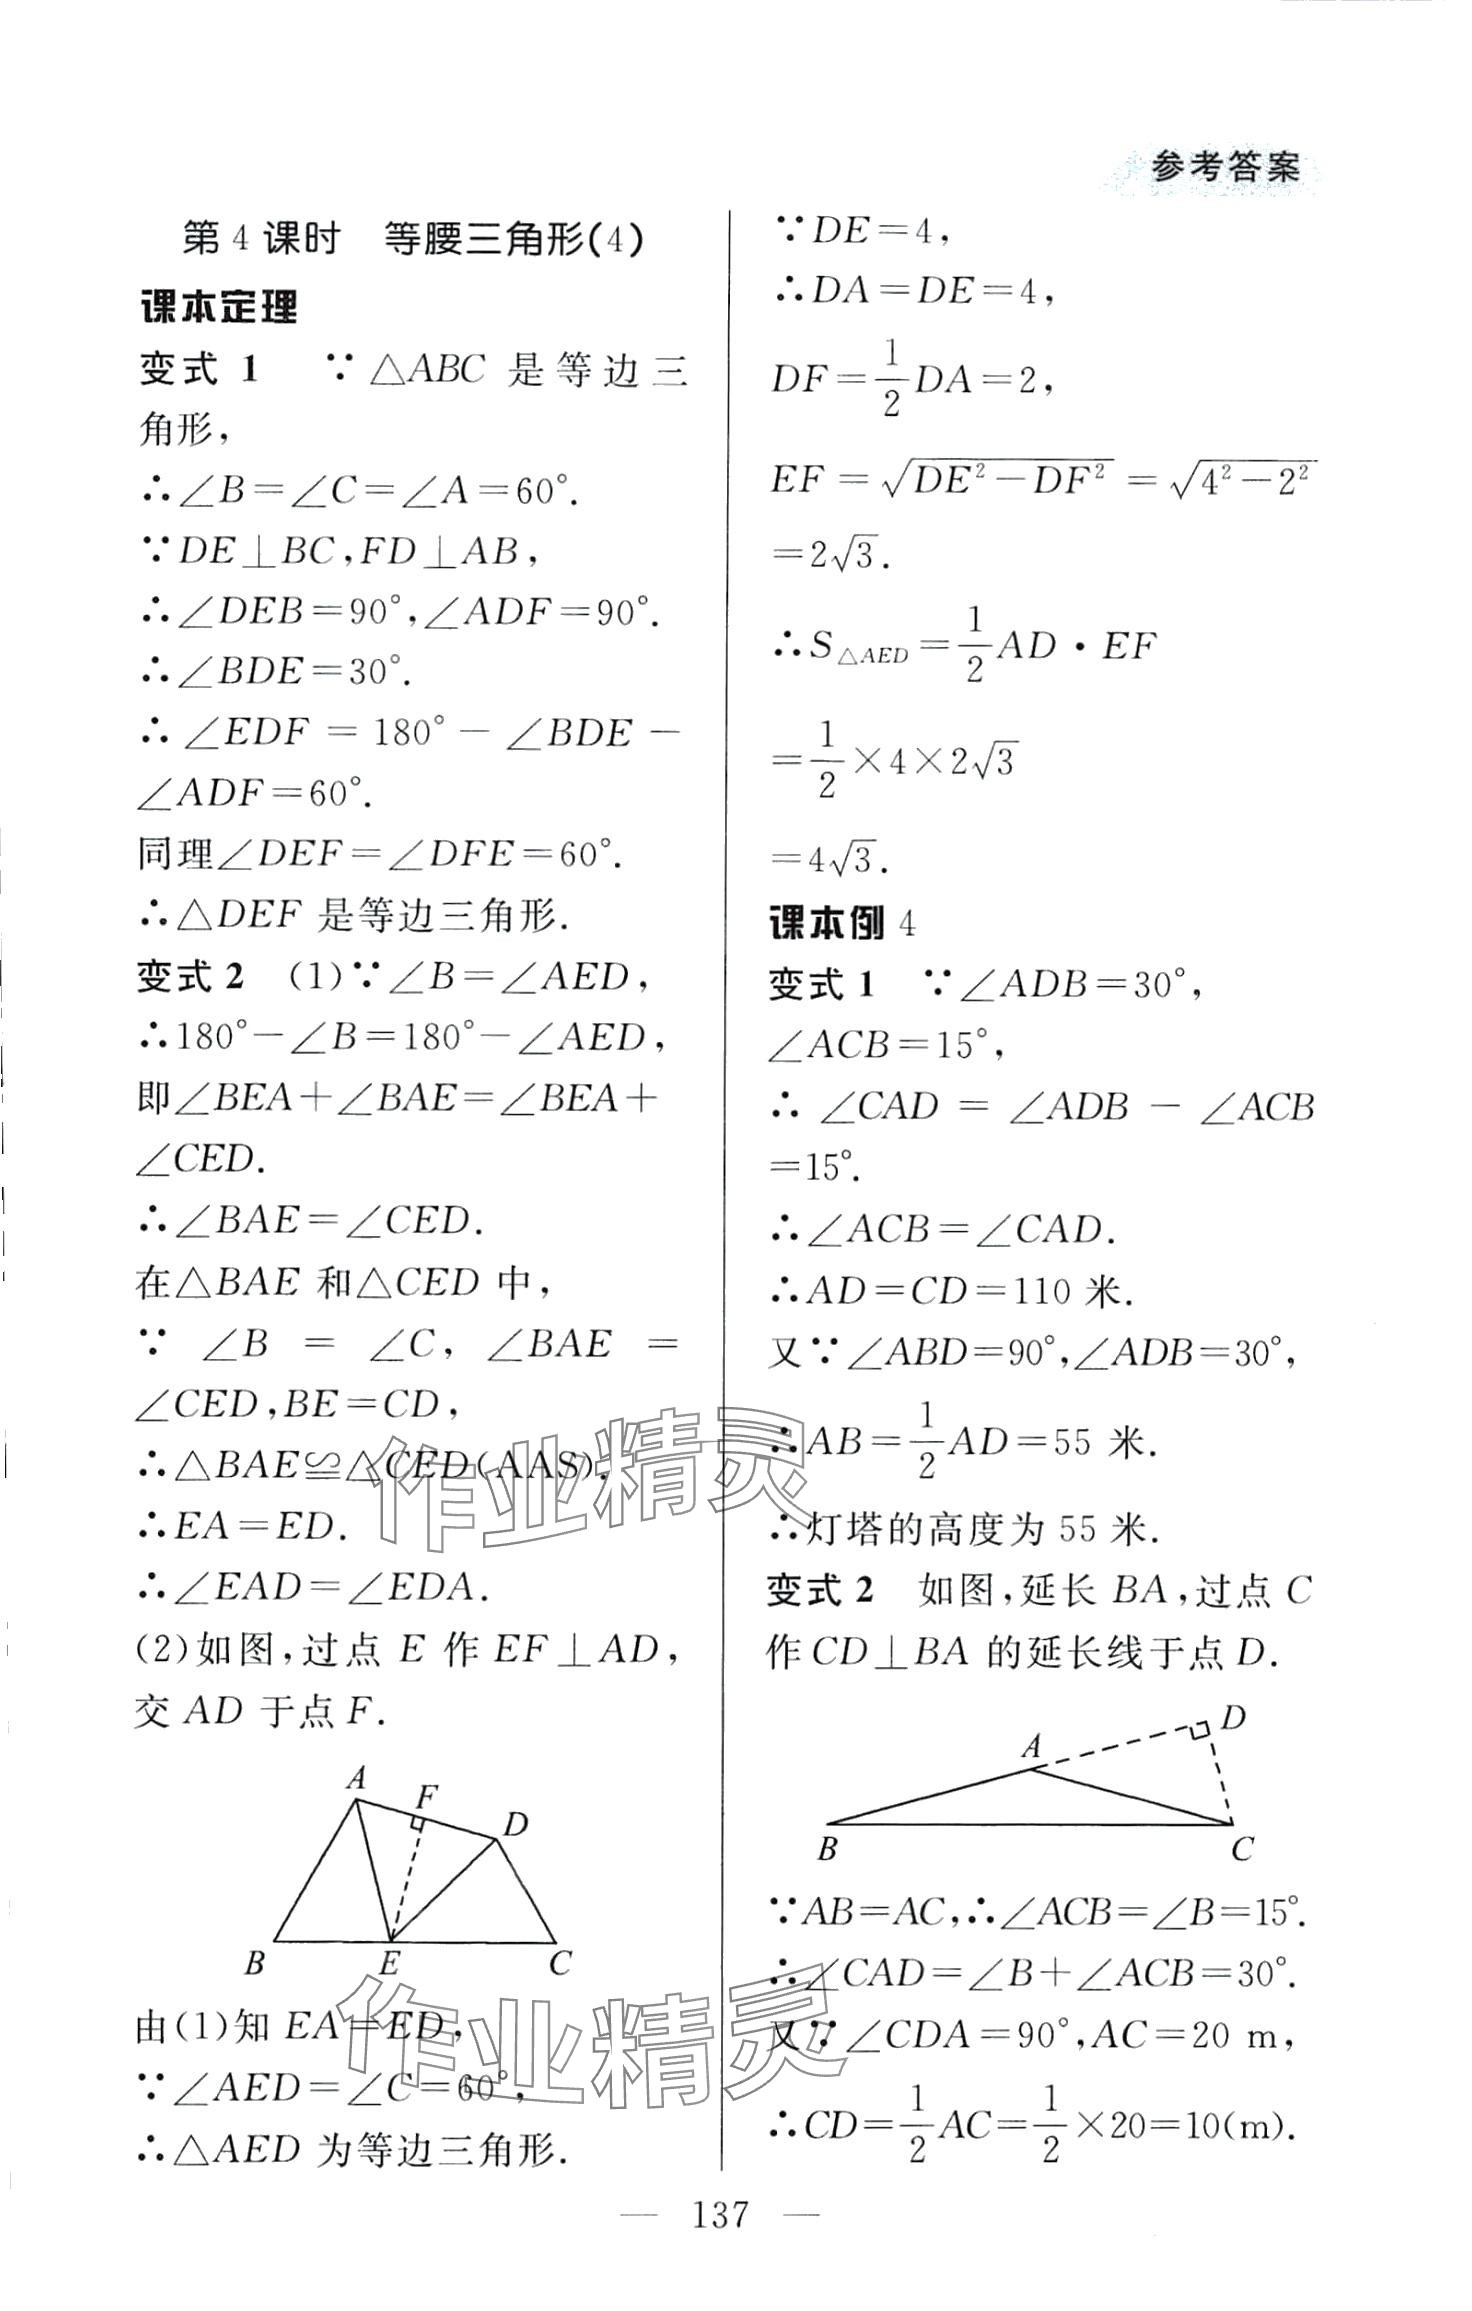 参考答案
第4课时 等腰三角形(4)
课本定理
变式1 ∵△ABC是等边三
角形,
∴∠B=∠C=∠A=60°.
∵DE⊥BC,FD⊥AB,
∴∠DEB=90°,∠ADF=90°.
∴∠BDE=30°.
∴∠EDF=180°-∠BDE-
∠ADF=60°.
同理∠DEF=∠DFE=60°.
∴△DEF是等边三角形.
变式2 (1)∵∠B=∠AED,
∴180°-∠B=180°-∠AED,
即∠BEA+∠BAE=∠BEA+
∠CED.
∴∠BAE=∠CED.
在△BAE和△CED中,
∵∠B=∠C,∠BAE=
∠CED,BE=CD,
∴△BAE≌△CED(AAS).
∴EA=ED.
∴∠EAD=∠EDA.
(2)如图,过点E作EF⊥AD,
交AD于点F.
A
F
D
B
E
C
由(1)知EA=ED,
∵∠AED=∠C=60°,
∴△AED为等边三角形.
∵DE=4,
∴DA=DE=4,
DF=1/2DA=2,
EF=√(DE²-DF²)=√(4²-2²)
=2√3.
∴S△AED=1/2AD·EF
=1/2×4×2√3
=4√3.
课本例4
变式1 ∵∠ADB=30°,
∠ACB=15°,
∴∠CAD=∠ADB-∠ACB
=15°.
∴∠ACB=∠CAD.
∴AD=CD=110米.
又∵∠ABD=90°,∠ADB=30°,
∴AB=1/2AD=55米.
∴灯塔的高度为55米.
变式2 如图,延长BA,过点C
作CD⊥BA的延长线于点D.
D
A
B
C
∵AB=AC,∴∠ACB=∠B=15°.
∴∠CAD=∠B+∠ACB=30°.
又∵∠CDA=90°,AC=20 m,
∴CD=1/2AC=1/2×20=10(m).
作业精灵
作业精灵
— 137 —